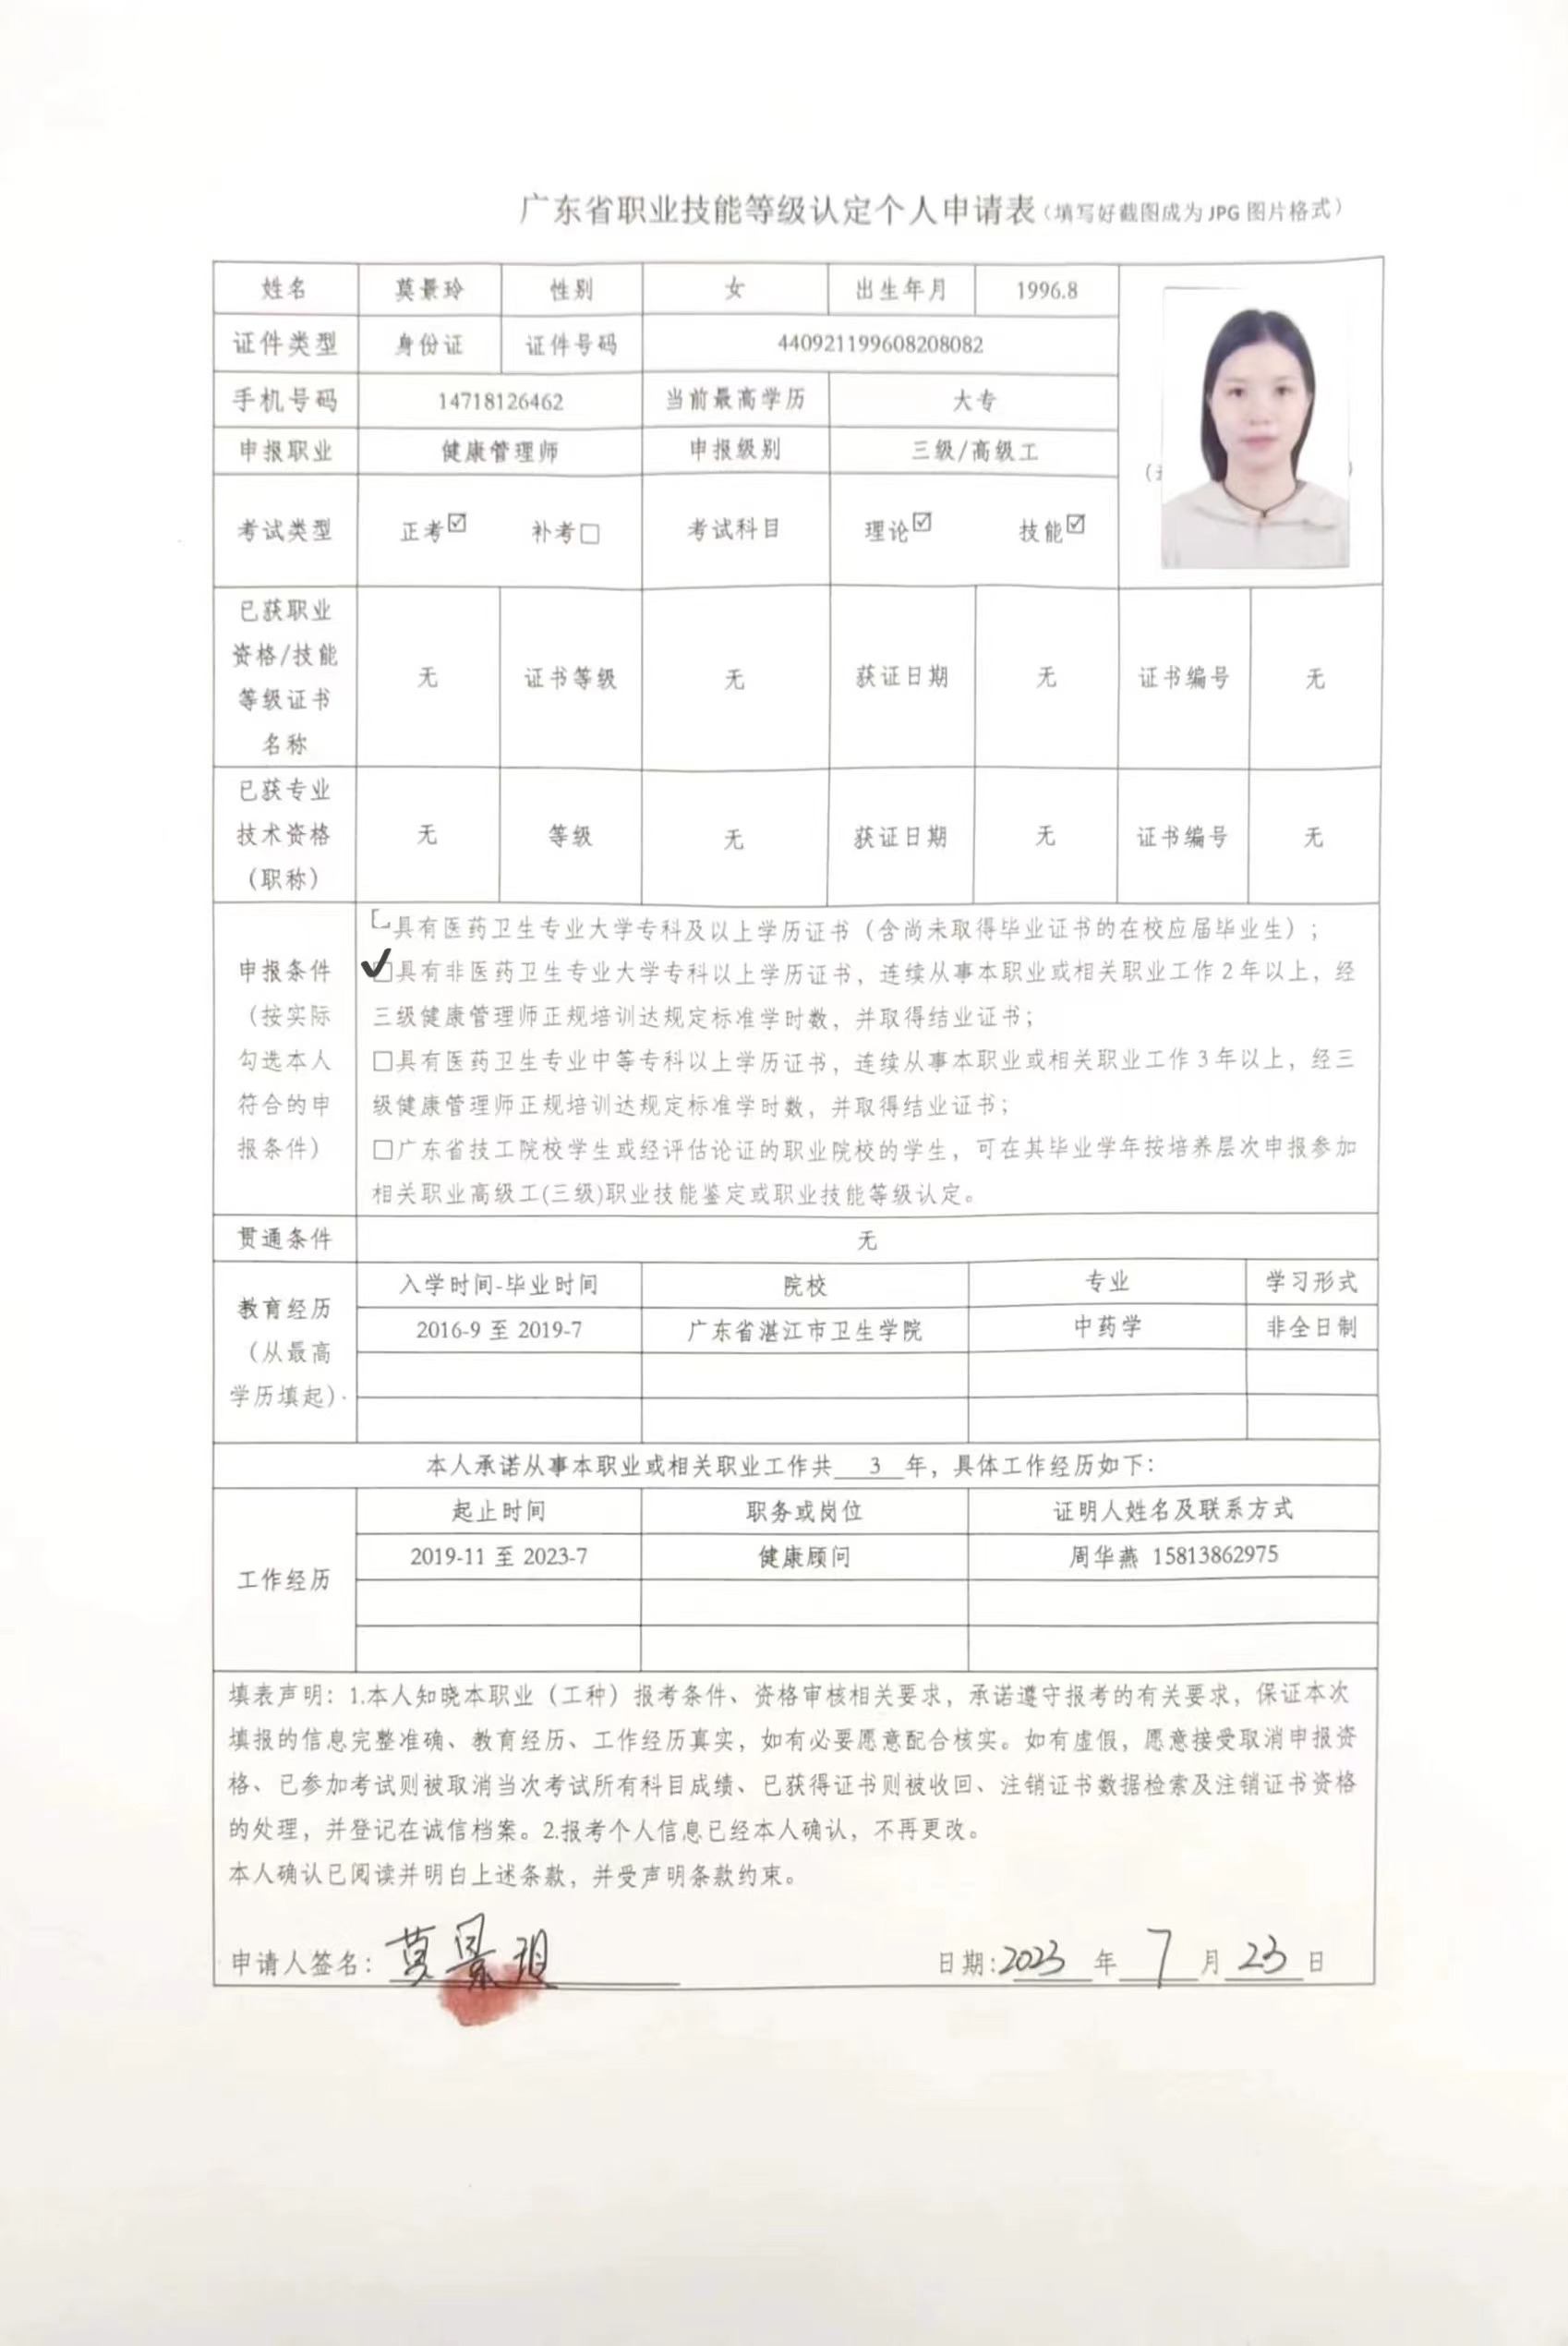 广东省职业技能等级认定个人申请表（填写好截图成为 JPG 图片格式）
姓名 莫景玲 性别 女 出生年月 1996.8
证件类型 身份证 证件号码 440921199608208082
手机号码 14718126462 当前最高学历 大专
申报职业 健康管理师 申报级别 三级/高级工
考试类型 正考☑ 补考□ 考试科目 理论☑ 技能☑
已获职业
资格/技能
等级证书
名称
无 证书等级 无 获证日期 无 证书编号 无
已获专业
技术资格
（职称）
无 等级 无 获证日期 无 证书编号 无
申报条件
（按实际
勾选本人
符合的申
报条件）
具有医药卫生专业大学专科及以上学历证书（含尚未取得毕业证书的在校应届毕业生）；
✓□具有非医药卫生专业大学专科以上学历证书，连续从事本职业或相关职业工作 2 年以上，经
三级健康管理师正规培训达规定标准学时数，并取得结业证书；
□具有医药卫生专业中等专科以上学历证书，连续从事本职业或相关职业工作 3 年以上，经三
级健康管理师正规培训达规定标准学时数，并取得结业证书；
□广东省技工院校学生或经评估论证的职业院校的学生，可在其毕业学年按培养层次申报参加
相关职业高级工(三级)职业技能鉴定或职业技能等级认定。
贯通条件 无
教育经历
（从最高
学历填起）
入学时间-毕业时间 院校 专业 学习形式
2016-9 至 2019-7 广东省湛江市卫生学院 中药学 非全日制
本人承诺从事本职业或相关职业工作共 3 年，具体工作经历如下：
工作经历
起止时间 职务或岗位 证明人姓名及联系方式
2019-11 至 2023-7 健康顾问 周华燕 15813862975
填表声明：1.本人知晓本职业（工种）报考条件、资格审核相关要求，承诺遵守报考的有关要求，保证本次
填报的信息完整准确、教育经历、工作经历真实，如有必要愿意配合核实。如有虚假，愿意接受取消申报资
格、已参加考试则被取消当次考试所有科目成绩、已获得证书则被收回、注销证书数据检索及注销证书资格
的处理，并登记在诚信档案。2.报考个人信息已经本人确认，不再更改。
本人确认已阅读并明白上述条款，并受声明条款约束。
申请人签名：莫景玲 日期:2023 年 7 月 23 日